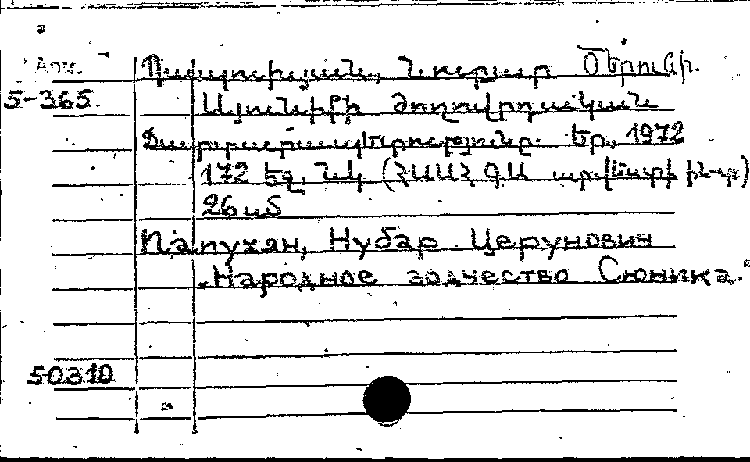 Арм.
Պապուխյան, Նուբար Ծերունի.
5-365
Սյունիքի ժողովրդական
ճարտարապետությունը. Եր., 1972
172 էջ, նկ (ՀՍՍՀ ԳԱ արվեստի ին-տ)
26 սմ
Папухян, Нубар Церунович
„Народное зодчество Сюника."
50310